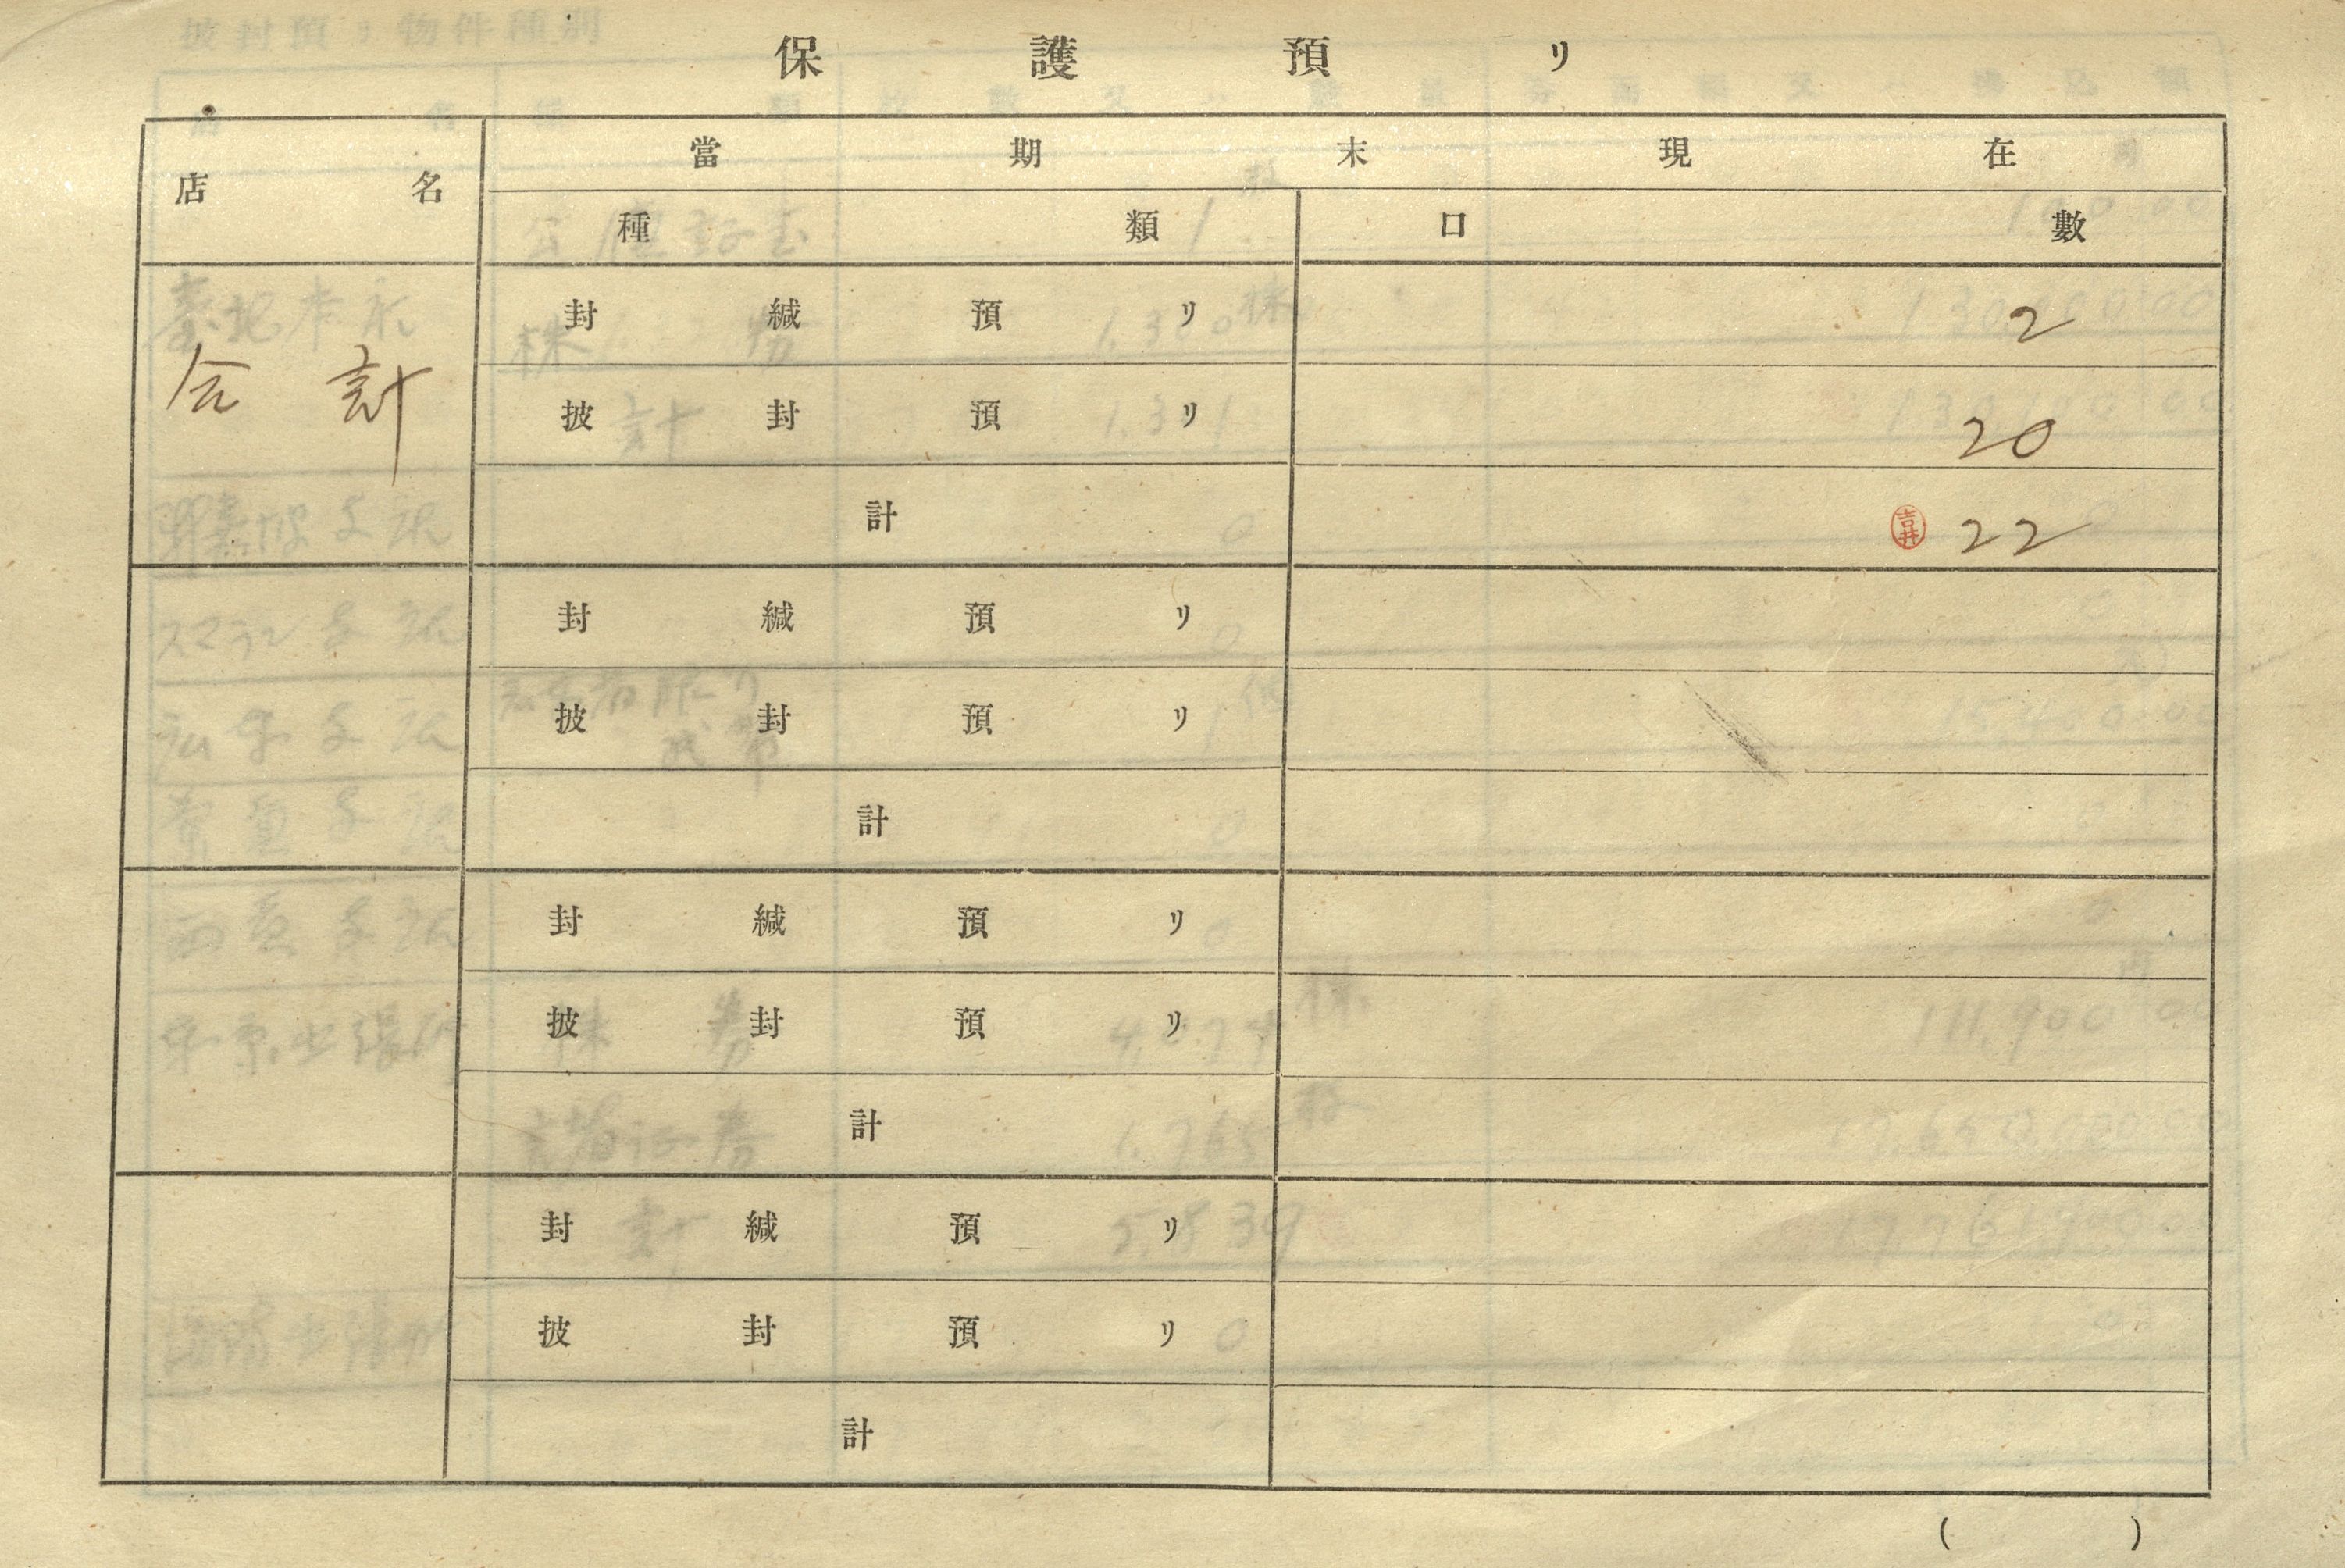 保護預リ
店名 當期末現在
種類 口數
合計 封緘預リ 2
披封預リ 20
計 吉井 22
封緘預リ
披封預リ
計
封緘預リ
披封預リ
計
封緘預リ
披封預リ
計
( )